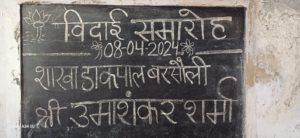 विदाई समारोह
08-04-2024
शाखा डाकपाल बरसौली
श्री उमाशंकर शर्मा